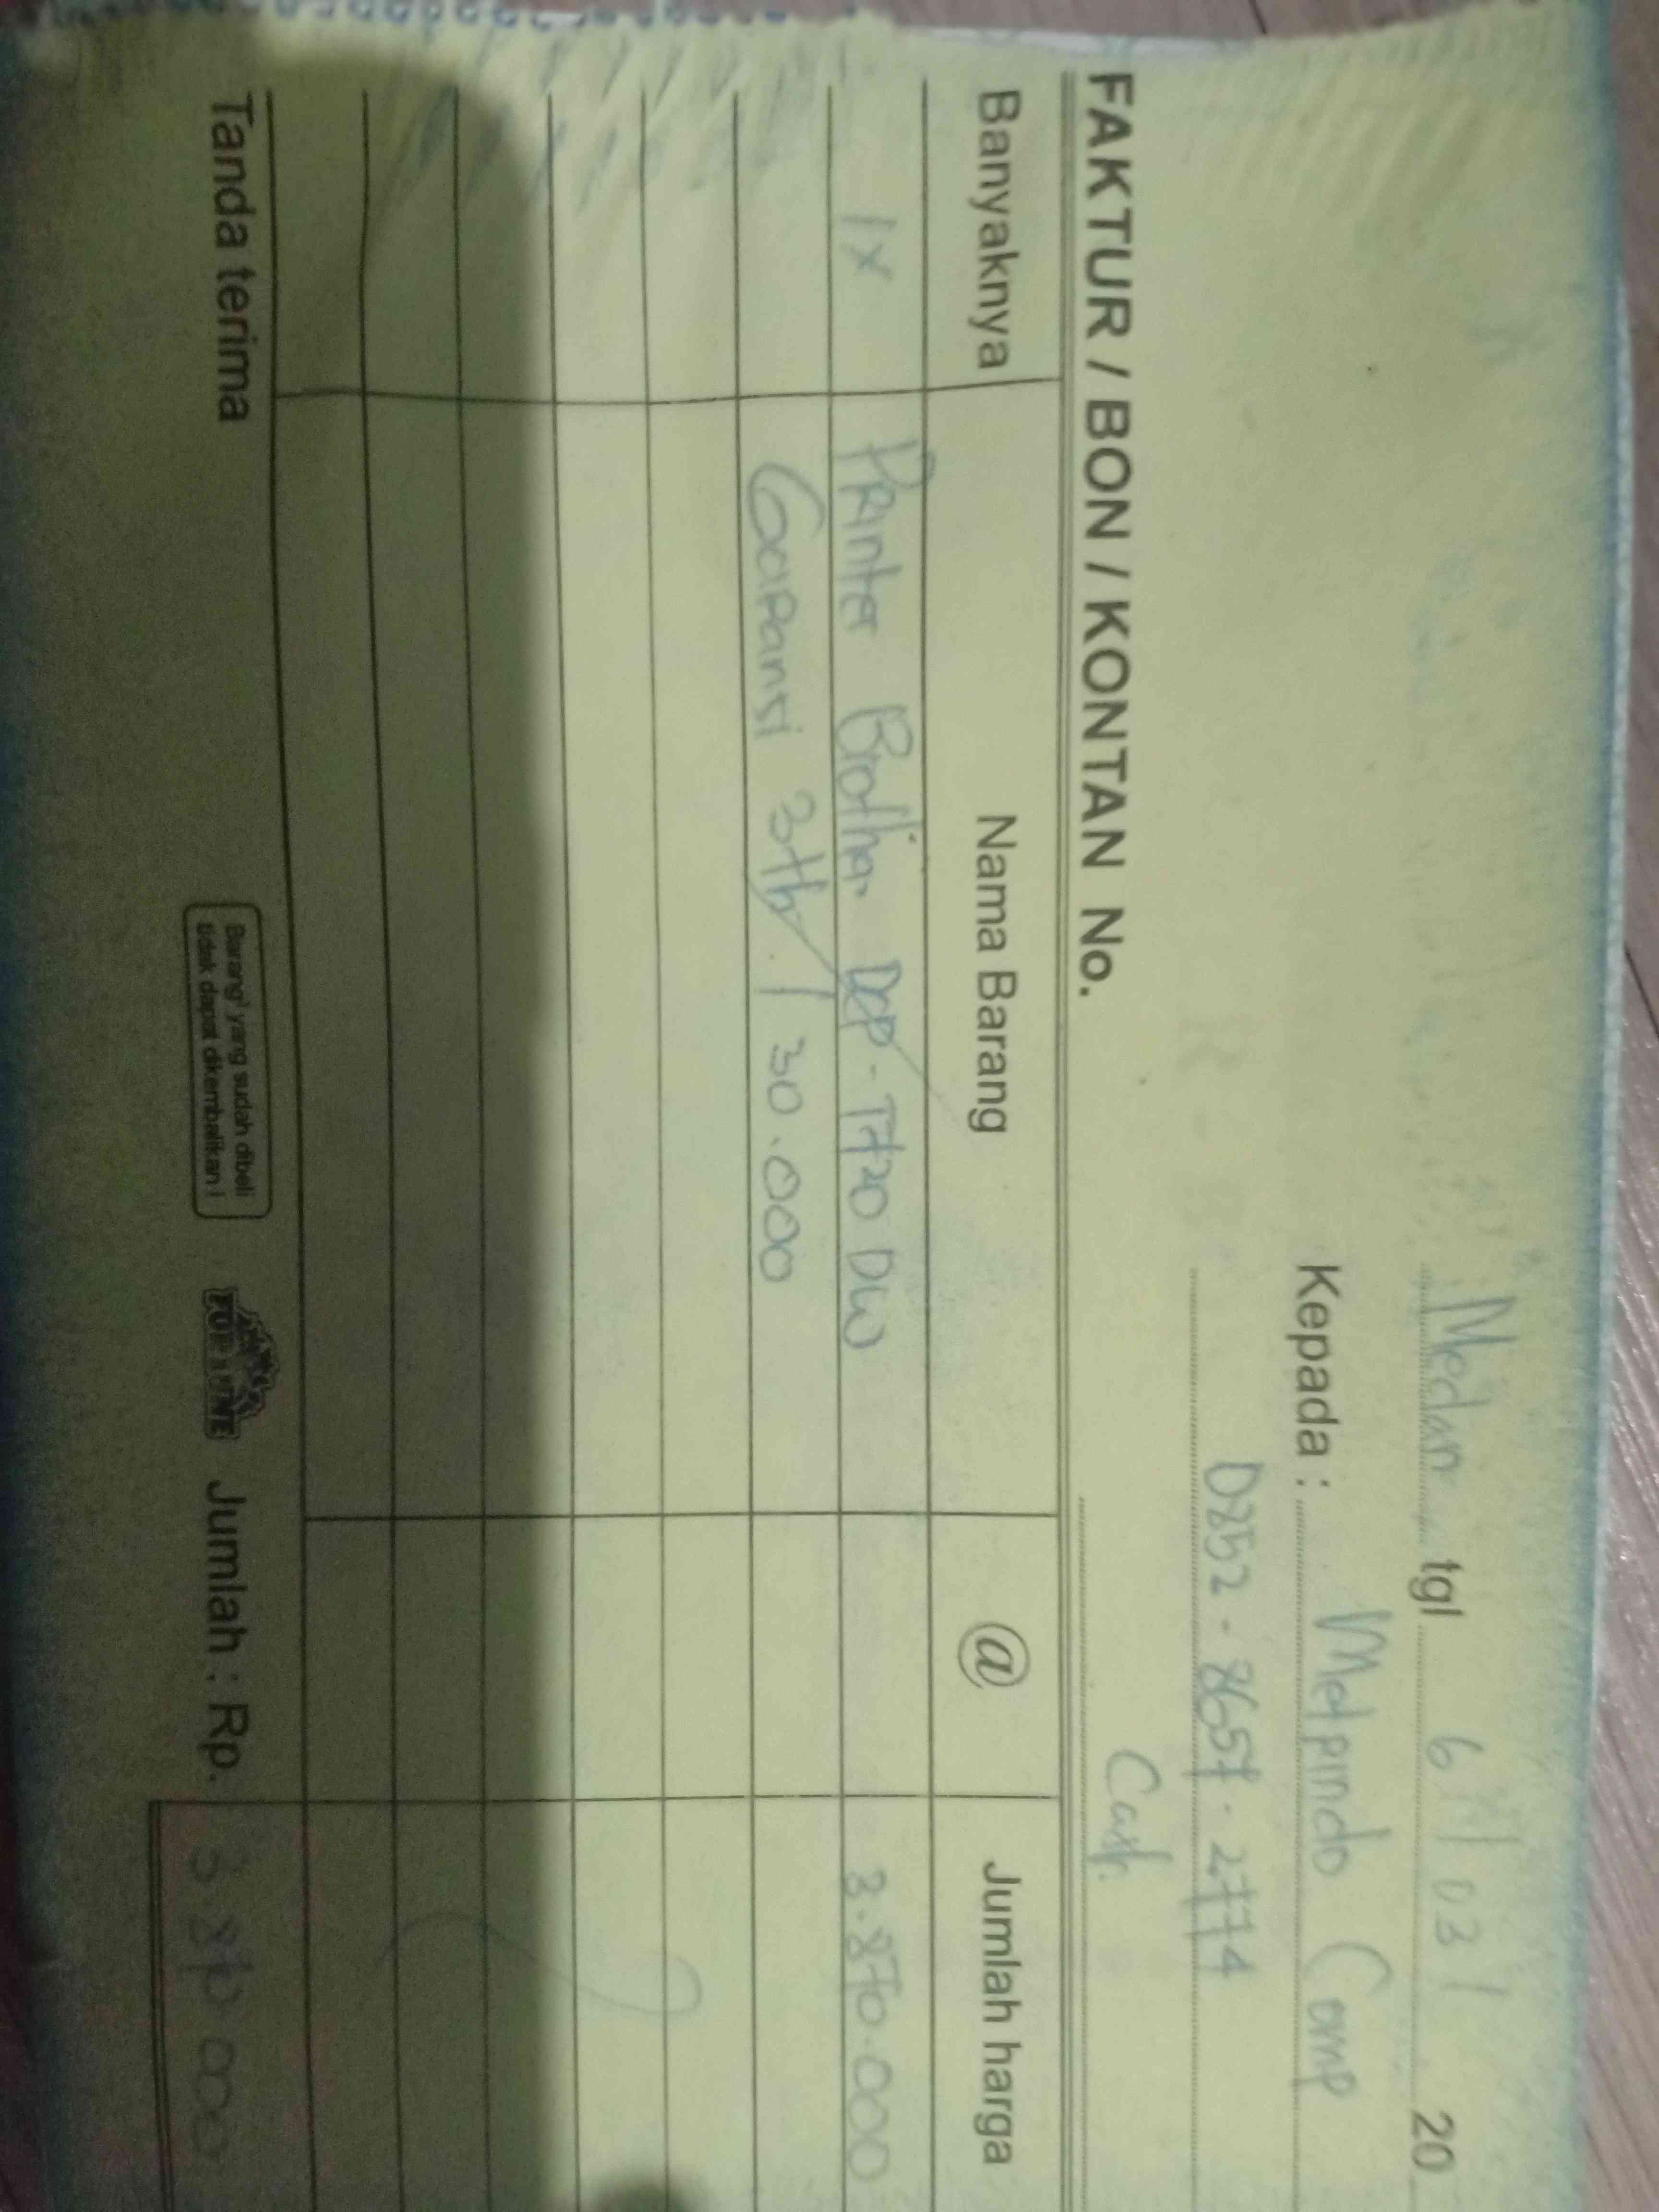 Medan tgl 6 / 03 / 20
Kepada : Metrindo Comp
0852 - 8657 - 2774
FAKTUR / BON / KONTAN No. Cash
Banyaknya Nama Barang @ Jumlah harga
1x Printer Brother DCP - T720 DW 3.870.000
Garansi 3th / 30.000
Tanda terima
Barang² yang sudah dibeli
tidak dapat dikembalikan !
FORTUNE
Jumlah : Rp. 3.870.000